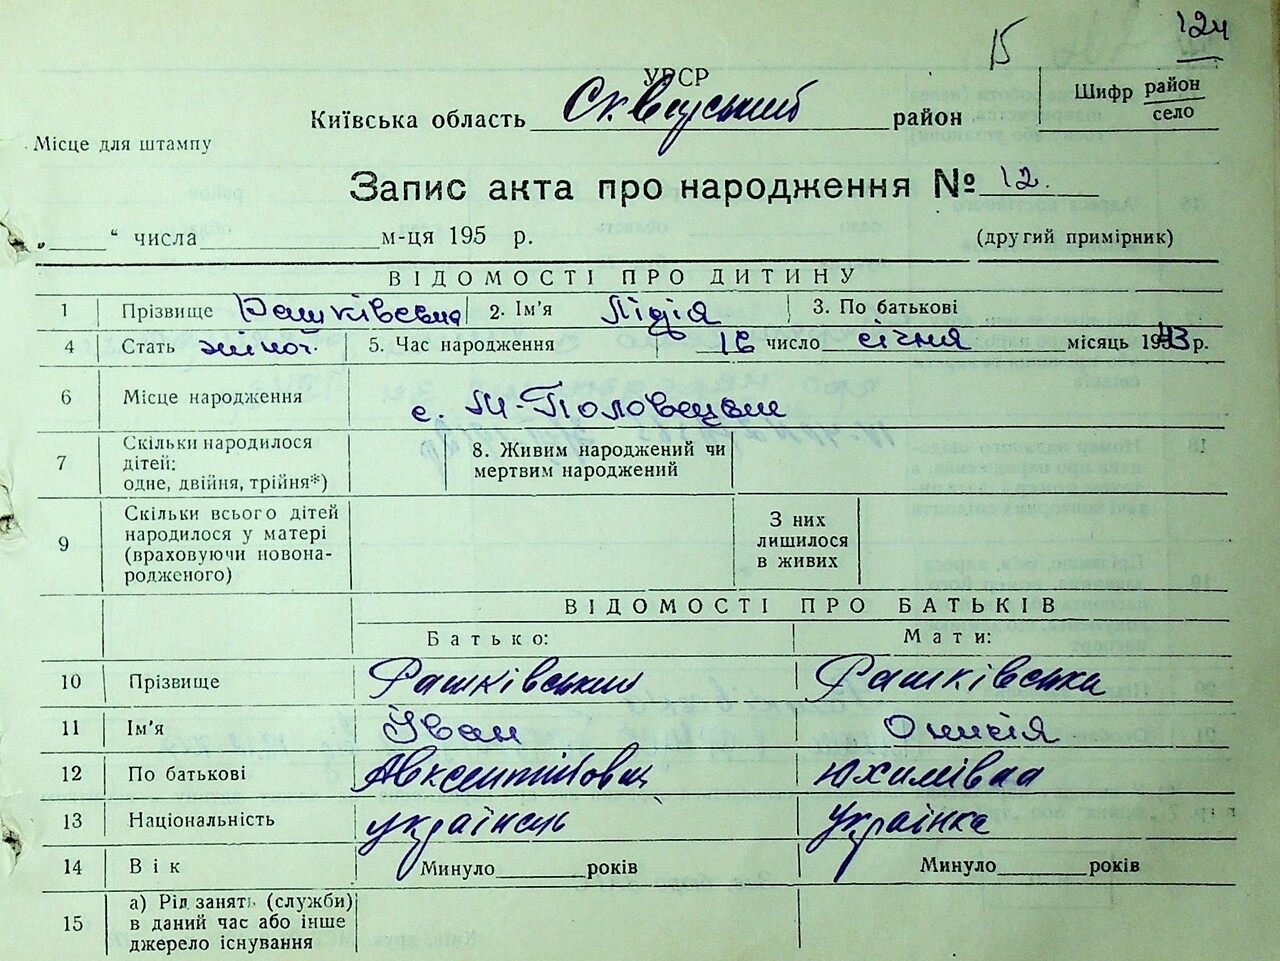 15 124
УРСР
Київська область Сквирський район Шифр район село
Місце для штампу
Запис акта про народження № 12.
„ “ числа м-ця 195 р. (другий примірник)
ВІДОМОСТІ ПРО ДИТИНУ
1 Прізвище Рашківська 2. Ім'я Лідія 3. По батькові
4 Стать жіноч. 5. Час народження 16 число січня місяць 1943 р.
6 Місце народження с. М-Половецьке
7 Скільки народилося дітей: одне, двійня, трійня*) 8. Живим народжений чи мертвим народжений
9 Скільки всього дітей народилося у матері (враховуючи новонародженого) З них лишилося в живих
ВІДОМОСТІ ПРО БАТЬКІВ
Батько: Мати:
10 Прізвище Рашківський Рашківська
11 Ім'я Іван Онисія
12 По батькові Авксентійович Юхимівна
13 Національність українець Українка
14 Вік Минуло років Минуло років
15 а) Рід занять (служби) в даний час або інше джерело існування